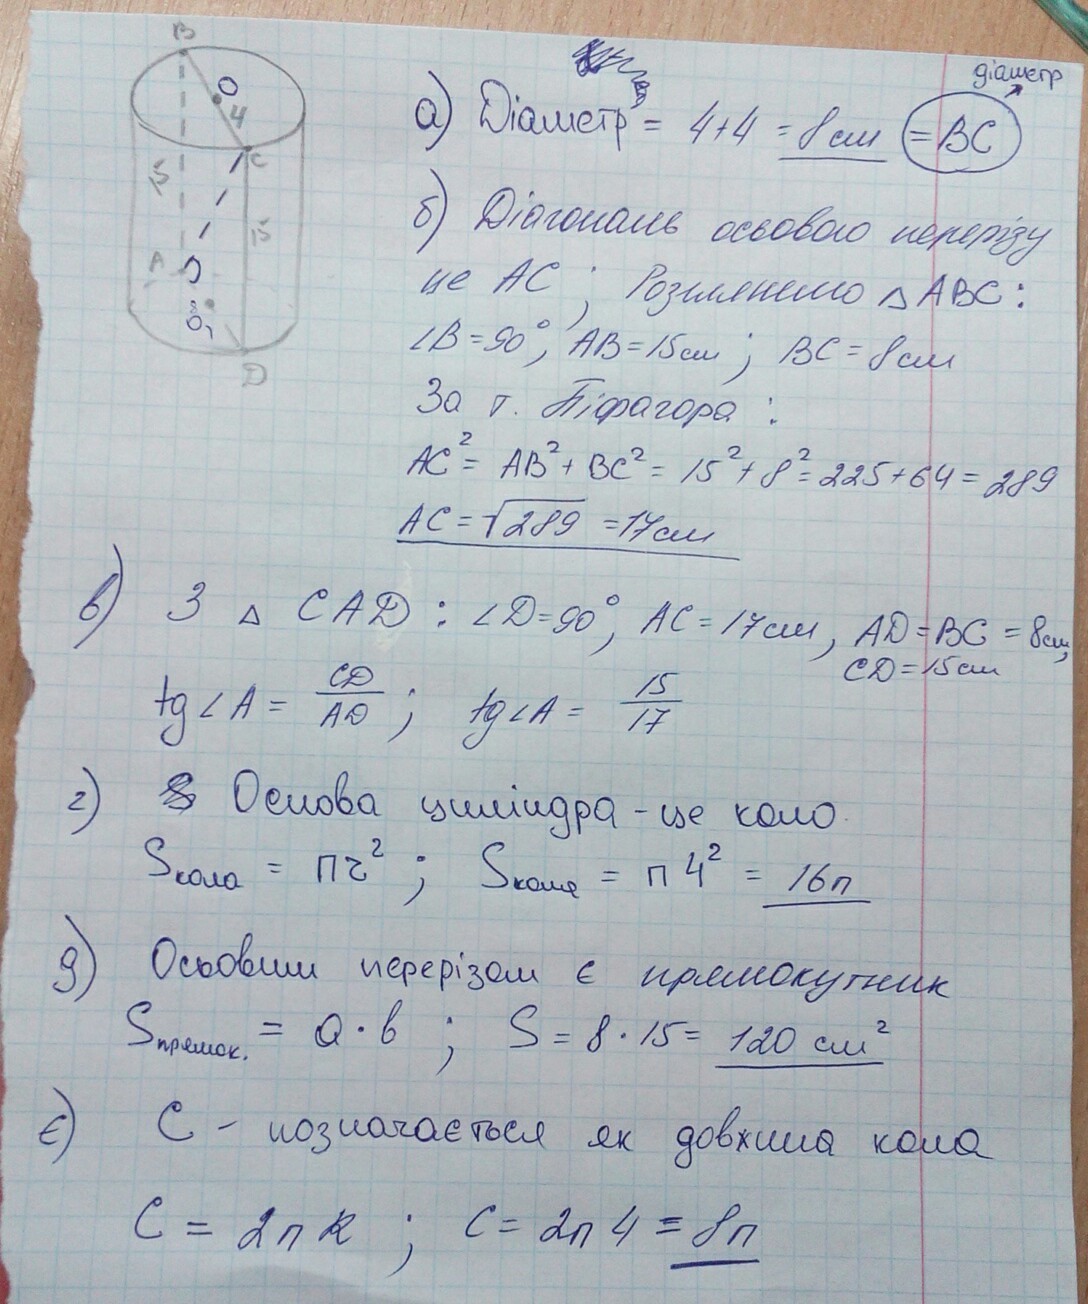 B
O
4
C
15
15
A
O₁
D
діаметр
а) Діаметр = 4+4 = 8см (= BC)
б) Діагональ осьового перерізу
це AC ; Розглянемо △ABC:
∠B=90°, AB=15см ; BC=8см
За т. Піфагора :
AC² = AB² + BC² = 15² + 8² = 225+64 = 289
AC = √289 = 17см
в) З △ CAD : ∠D=90°, AC=17см, AD=BC=8см,
CD=15см
tg∠A = CD/AD ; tg∠A = 15/17
г) Основа циліндра - це коло.
Sкола = πr² ; Sкола = π 4² = 16π
д) Осьовим перерізом є прямокутник
Sпрямок. = a·b ; S = 8·15 = 120 см²
є) C - позначається як довжина кола
C = 2πR ; C = 2π4 = 8π